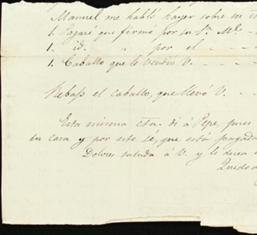 Manuel me habló hayer sobre mi
1. Pagaré que firmo por su Vº Mel
1. id. " por el
1. Caballo que le vendió V.
Rebajo el caballo, que llevó V.
Esta misma cta. di á Pepe, pues
en casa y por este sé, que está pagada
Dolores saluda á V. y le desea
Quedo